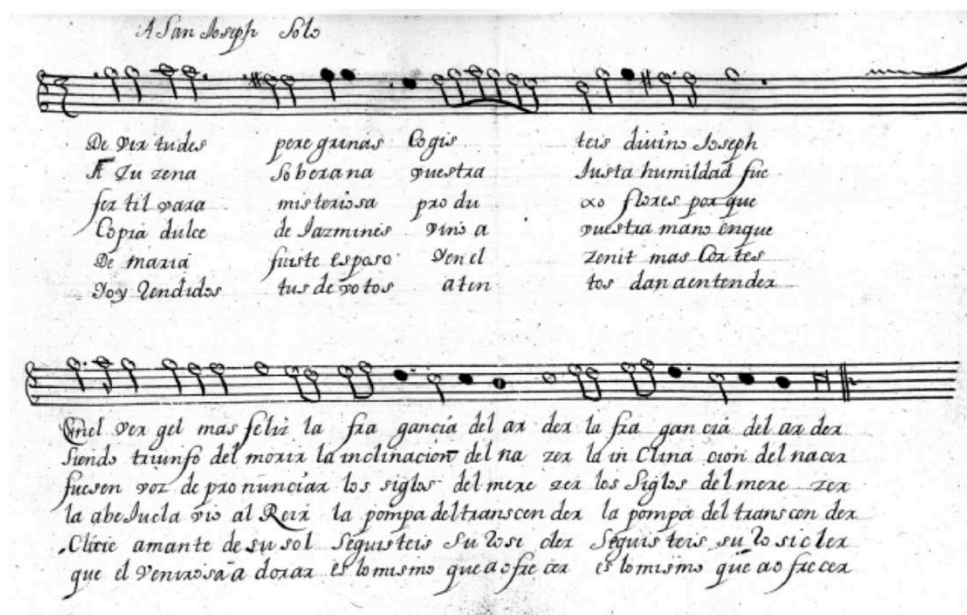 A San Joseph Solo
De vir tudes pere grinas Cogis teis divino Joseph
A Zu zena So berana vuestra Justa humildad fue
fer til vara misteriosa pro du xo flores por que
Copia dulce de Jazmines vino a vuestra mano enque
De maria fuiste esposo Y en el zenit mas Cor tes
Y oy Rendidos tus de votos aten tos dan aentender
En el ver gel mas feliz la fra gancia del ar der la fra gan cia del ar der
Siendo triunfo del morir la inclinacion del na zer la in Clina cion del nacer
fuesen voz de pro nunciar los siglos del mere zer los Siglos del mere zer
la abe Juela vio al Reir la pompa del transcen der la pompa del transcen der
Clicie amante de su sol Seguisteis Su losi der Seguis teis su lo si cler
que el venir os a a dorar es lo mismo que a o fre cer es lo mismo que a o fre cer